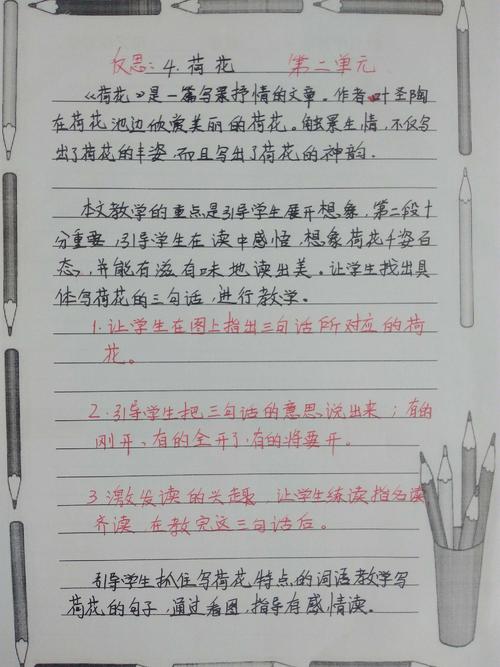 反思：4.荷花 第二单元
《荷花》是一篇写景抒情的文章。作者叶圣陶
在荷花池边欣赏美丽的荷花。触景生情，不仅写
出了荷花的丰姿，而且写出了荷花的神韵.
本文教学的重点是引导学生展开想象，第二段十
分重要，引导学生在读中感悟，想象荷花千姿百
态，并能有滋有味地读出美。让学生找出具
体写荷花的三句话，进行教学。
1.让学生在图上指出三句话所对应的荷
花。
2.引导学生把三句话的意思说出来；有的
刚开、有的全开了，有的将要开。
3.激发读的兴趣，让学生练读指名读
齐读，在教完这三句话后。
引导学生抓住写荷花特点的词语教学写
荷花的句子，通过看图，指导有感情读。